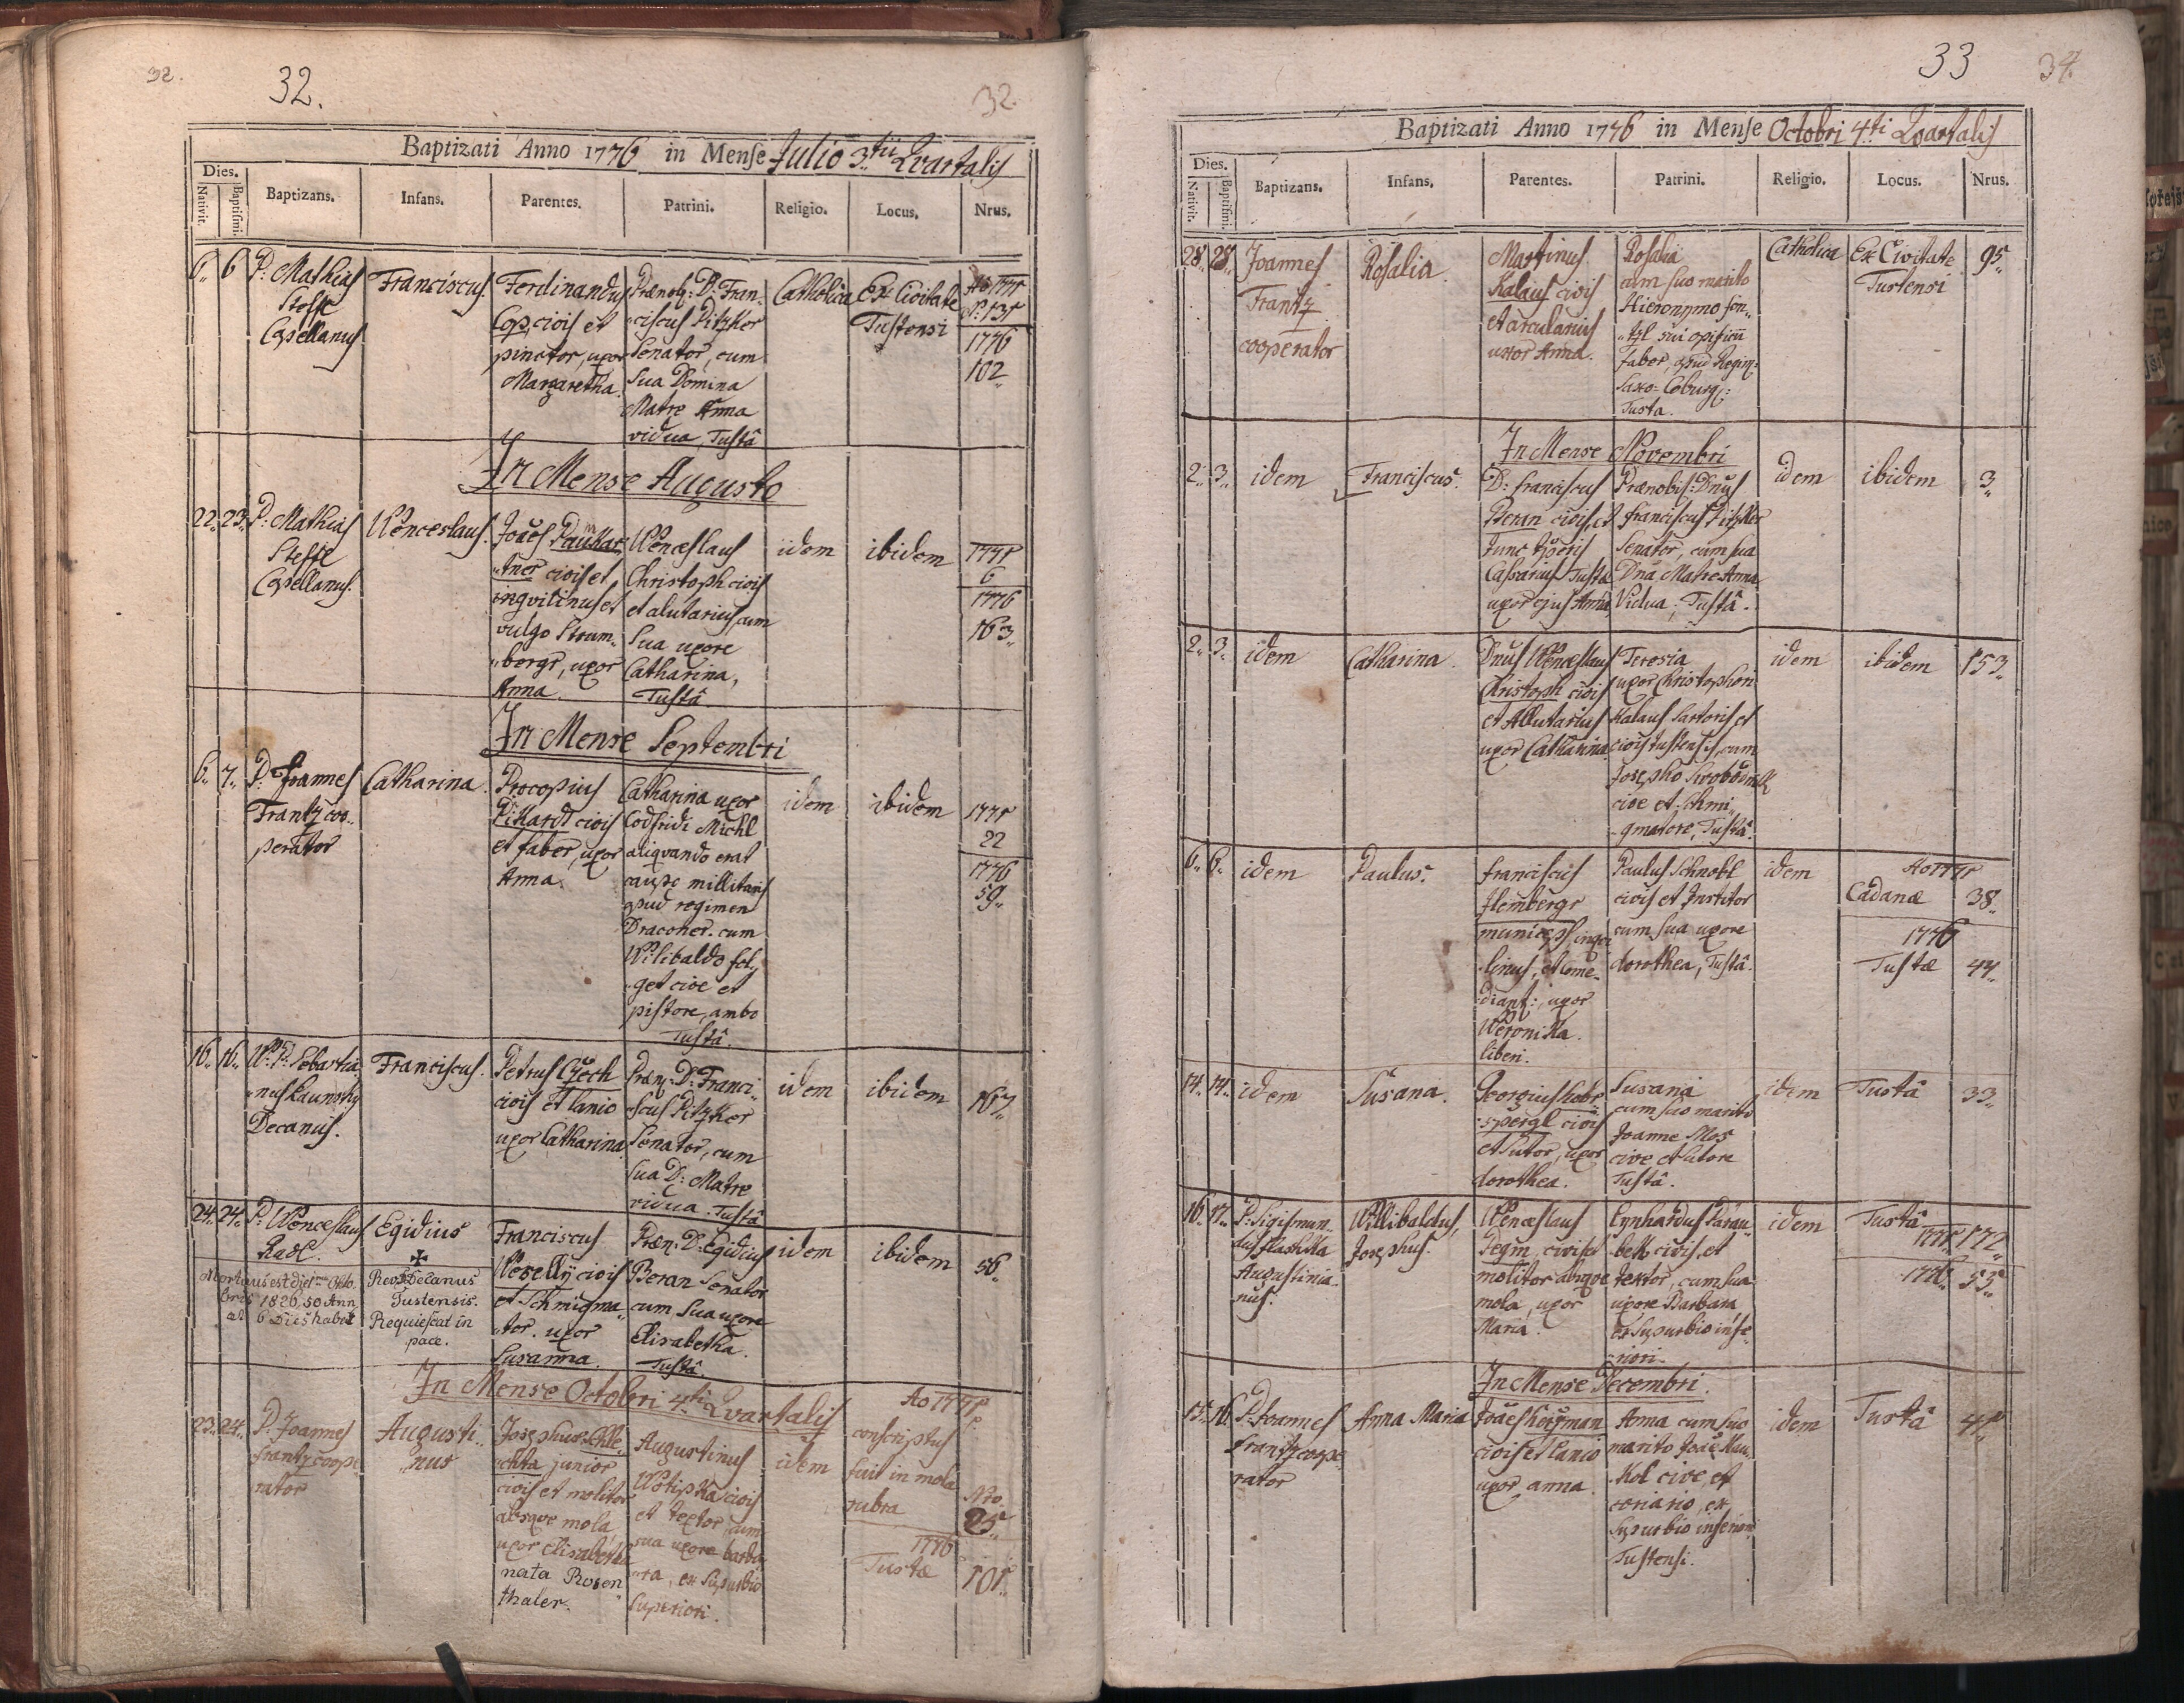 32.
32.
32.
Baptizati Anno 1776 in Mense Julio 3tii Quartalis
Dies.
Nativit.
Baptismi.
Baptizans.
Infans.
Parentes.
Patrini.
Religio.
Locus.
Nrus.
6. 6
P: Mathias
Steffl
Capellanus
Franciscus.
Ferdinandus
civis et
uxor
Margaretha.
Prænob: D: Fran-
ciscus Pitzker
Senator, cum
Sua Domina
Matre Anna
vidua, Tustâ
Catholica
Ex Civitate
Tustensi
1776
102
In Mense Augusto
22. 23.
P: Mathias
Steffl
Capellanus.
Wenceslaus.
Joães
tner civis et
inqvilinus et
vulgo Strum-
bergr, uxor
Anna.
Wenceslaus
Christoph civis
et alutarius cum
Sua uxore
Catharina,
Tustâ
idem
ibidem
1771
6
1776
163
In Mense Septembri
6. 7.
P: Joannes
Frantz coo-
perator
Catharina.
Procopius
Pikardt civis
et faber, uxor
Anna.
Catharina uxor
Godfridi Michl
aliqvando erat
millitaris
apud regimen
Draconer. cum
Wilibaldo
get cive et
pistore, ambo
Tustâ.
idem
ibidem
1771
22
1776
59.
16. 16.
P: Sebastia-
nus Launsky
Decanus.
Franciscus.
Petrus Czech
civis et lanio
uxor Catharina
Præn: D: Franci-
scus Pitzker
Senator, cum
Sua D: Matre
vidua. Tustâ
idem
ibidem
167.
24. 24.
P: Wenceslaus
Radl.
Mortuus est die
1826, 50 Ann
6 Dies habet
Egidius
✠
Decanus
Tustensis.
Requiescat in
pace.
Franciscus
Wesellÿ civis
et Schmigma-
tor. uxor
Susanna.
Præn: D: Egidius
Beran Senator
cum Sua uxore
Elisabetha.
Tustâ.
idem
ibidem
56.
In Mense Octobri 4ti Quartalis
23. 24.
P: Joannes
Frantz coope
rator
Augusti-
nus
Josephus Schle-
chta junior
civis et molitor
absqve mola
uxor Elisabetha
nata Rosen
thaler.
Augustinus
Wotipka civis
et textor, cum
sua uxore barba-
ra, ex Suburbio
Superiori.
idem
Ao 1771
conscriptus
fuit in mola
rubra
Nro.
25
1776
Tustæ
101.
33
34.
Baptizati Anno 1776 in Mense Octobri 4ti Quartalis
Dies.
Nativit.
Baptismi.
Baptizans.
Infans.
Parentes.
Patrini.
Religio.
Locus.
Nrus.
28. 28.
Joannes
Frantz
cooperator
Rosalia
Martinus
Kalaus civis
et arcularius
uxor Anna.
Rosalia
cum suo marito
Hieronymo
sui opificii
faber, apud Regim:
Saxo-Coburg:
Tusta.
Catholica
Ex Civitate
Tustensi
95.
In Mense Novembri
2. 3.
idem
Franciscus.
D: Franciscus
Beran civis, et
Cassarius Tustæ
uxor ejus Anna
Prænobis: Dnus
Franciscus Pitzker
Senator, cum sua
Dna Matre Anna
Vidua, Tustâ.
idem
ibidem
3.
2. 3.
idem
Catharina.
Dnus Wenceslaus
Christoph civis
et Allutarius
uxor Catharina
Teresia
uxor Christophori
Kalaus Sartoris et
civis Tustensis, cum
Josepho Swobodnik
cive et Schmi-
gmatore, Tustâ.
idem
ibidem
153.
6. 6.
idem
Paulus.
Franciscus
Stembergr
municeps inqvi
linus, et Come-
diant:, uxor
Weronika
liberi.
Paulus Schnobl
civis et Institor
cum sua uxore
dorothea, Tustâ.
idem
Ao 1771
Cadanæ
38.
1776
Tustæ
44.
14. 14.
idem
Susana.
Georgius Habr
spergl civis
et Sutor, uxor
dorothea.
Susana
cum suo marito
Joanne Mos
cive et sutore
Tustâ.
idem
Tustâ
33.
16. 17.
P: Sigismun-
dus Flashka
Augustinia-
nus.
Willibaldus,
Josephus.
Wenceslaus
Pegm, civis et
molitor absqve
mola, uxor
Maria.
civis, et
textor, cum sua
uxore Barbara
ex Suburbio infe-
riori.
idem
Tustâ
1771.
172.
1776.
53.
In Mense Decembri.
15. 16.
P: Joannes
Frantz coope
rator
Anna Maria
Joães Hoyman
civis et lanio
uxor anna.
Anna cum suo
marito Joãe Kau-
kol cive, et
coriario, ex
Suburbio inferiori
Tustensi.
idem
Tustâ
41.